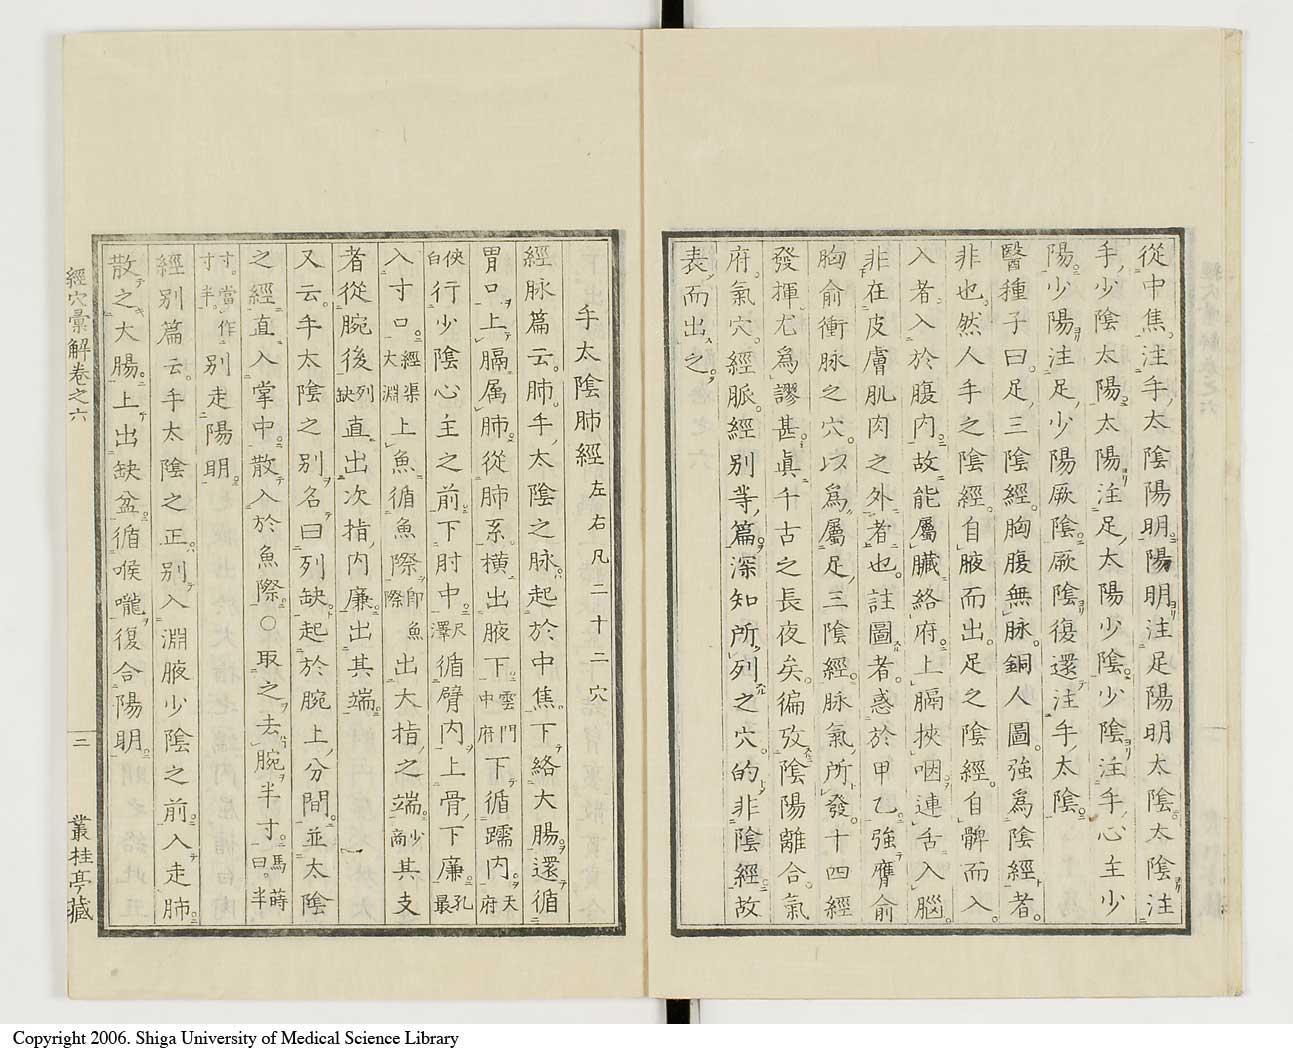 從中焦注手太陰陽明陽明注足陽明太陰太陰注
手少陰太陽太陽注足太陽少陰少陰注手心主少
陽少陽注足少陽厥陰厥陰復還注手太陰
醫種子曰足三陰經胸腹無脉銅人圖強爲陰經者
非也然人手之陰經自腋而出足之陰經自髀而入
入者入於腹内故能屬臓絡府上膈挾咽連舌入腦
非在皮膚肌肉之外者也註圖者惑於甲乙強膺俞
胸俞衝脉之穴以爲屬足三陰經脉氣所發十四經
發揮尤爲謬甚眞千古之長夜矣徧攷陰陽離合氣
府氣穴經脈經別等篇深知所列之穴的非陰經故
表而出之
手太陰肺經 左右凡二十二穴
經脉篇云肺手太陰之脉起於中焦下絡大腸還循
胃口上膈属肺從肺系横出腋下 雲門中府 下循臑内 天府
俠白 行少陰心主之前下肘中 尺澤 循臂内上骨下廉 孔最
入寸口 經渠大淵 上魚循魚際 即魚際 出大指之端 少商 其支
者從腕後 列缺 直出次指内廉出其端
又云手太陰之别名曰列缺起於腕上分間並太陰
之經直入掌中散入於魚際○取之去腕半寸 馬蒔曰半
寸當作寸半 别走陽明
經别篇云手太陰之正别入淵腋少陰之前入走肺
散之大腸上出缺盆循喉嚨復合陽明
經穴彙解卷之六 三 叢桂亭藏
Copyright 2006. Shiga University of Medical Science Library